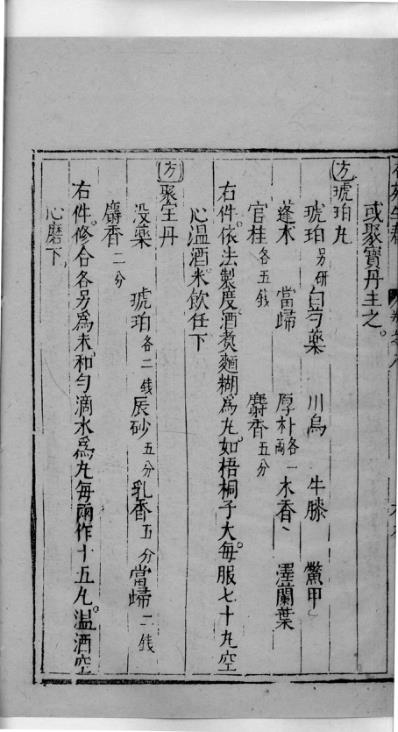 或聚寶丹主之。
方 琥珀丸
琥珀另研 白芍藥 川烏 牛膝 鱉甲
蓬木 當歸 厚朴各一兩 木香 澤蘭葉
官桂各五錢 麝香五分
右件。依法製度。酒煮麵糊為丸。如梧桐子大。每服七十丸。空
心溫酒米飲任下
方 聚宝丹
没藥 琥珀各二錢 辰砂五分 乳香五分 當歸二錢
麝香二分
右件。修合各另為末。和勻滴水為丸。每兩作十五丸。溫酒空
心磨下。